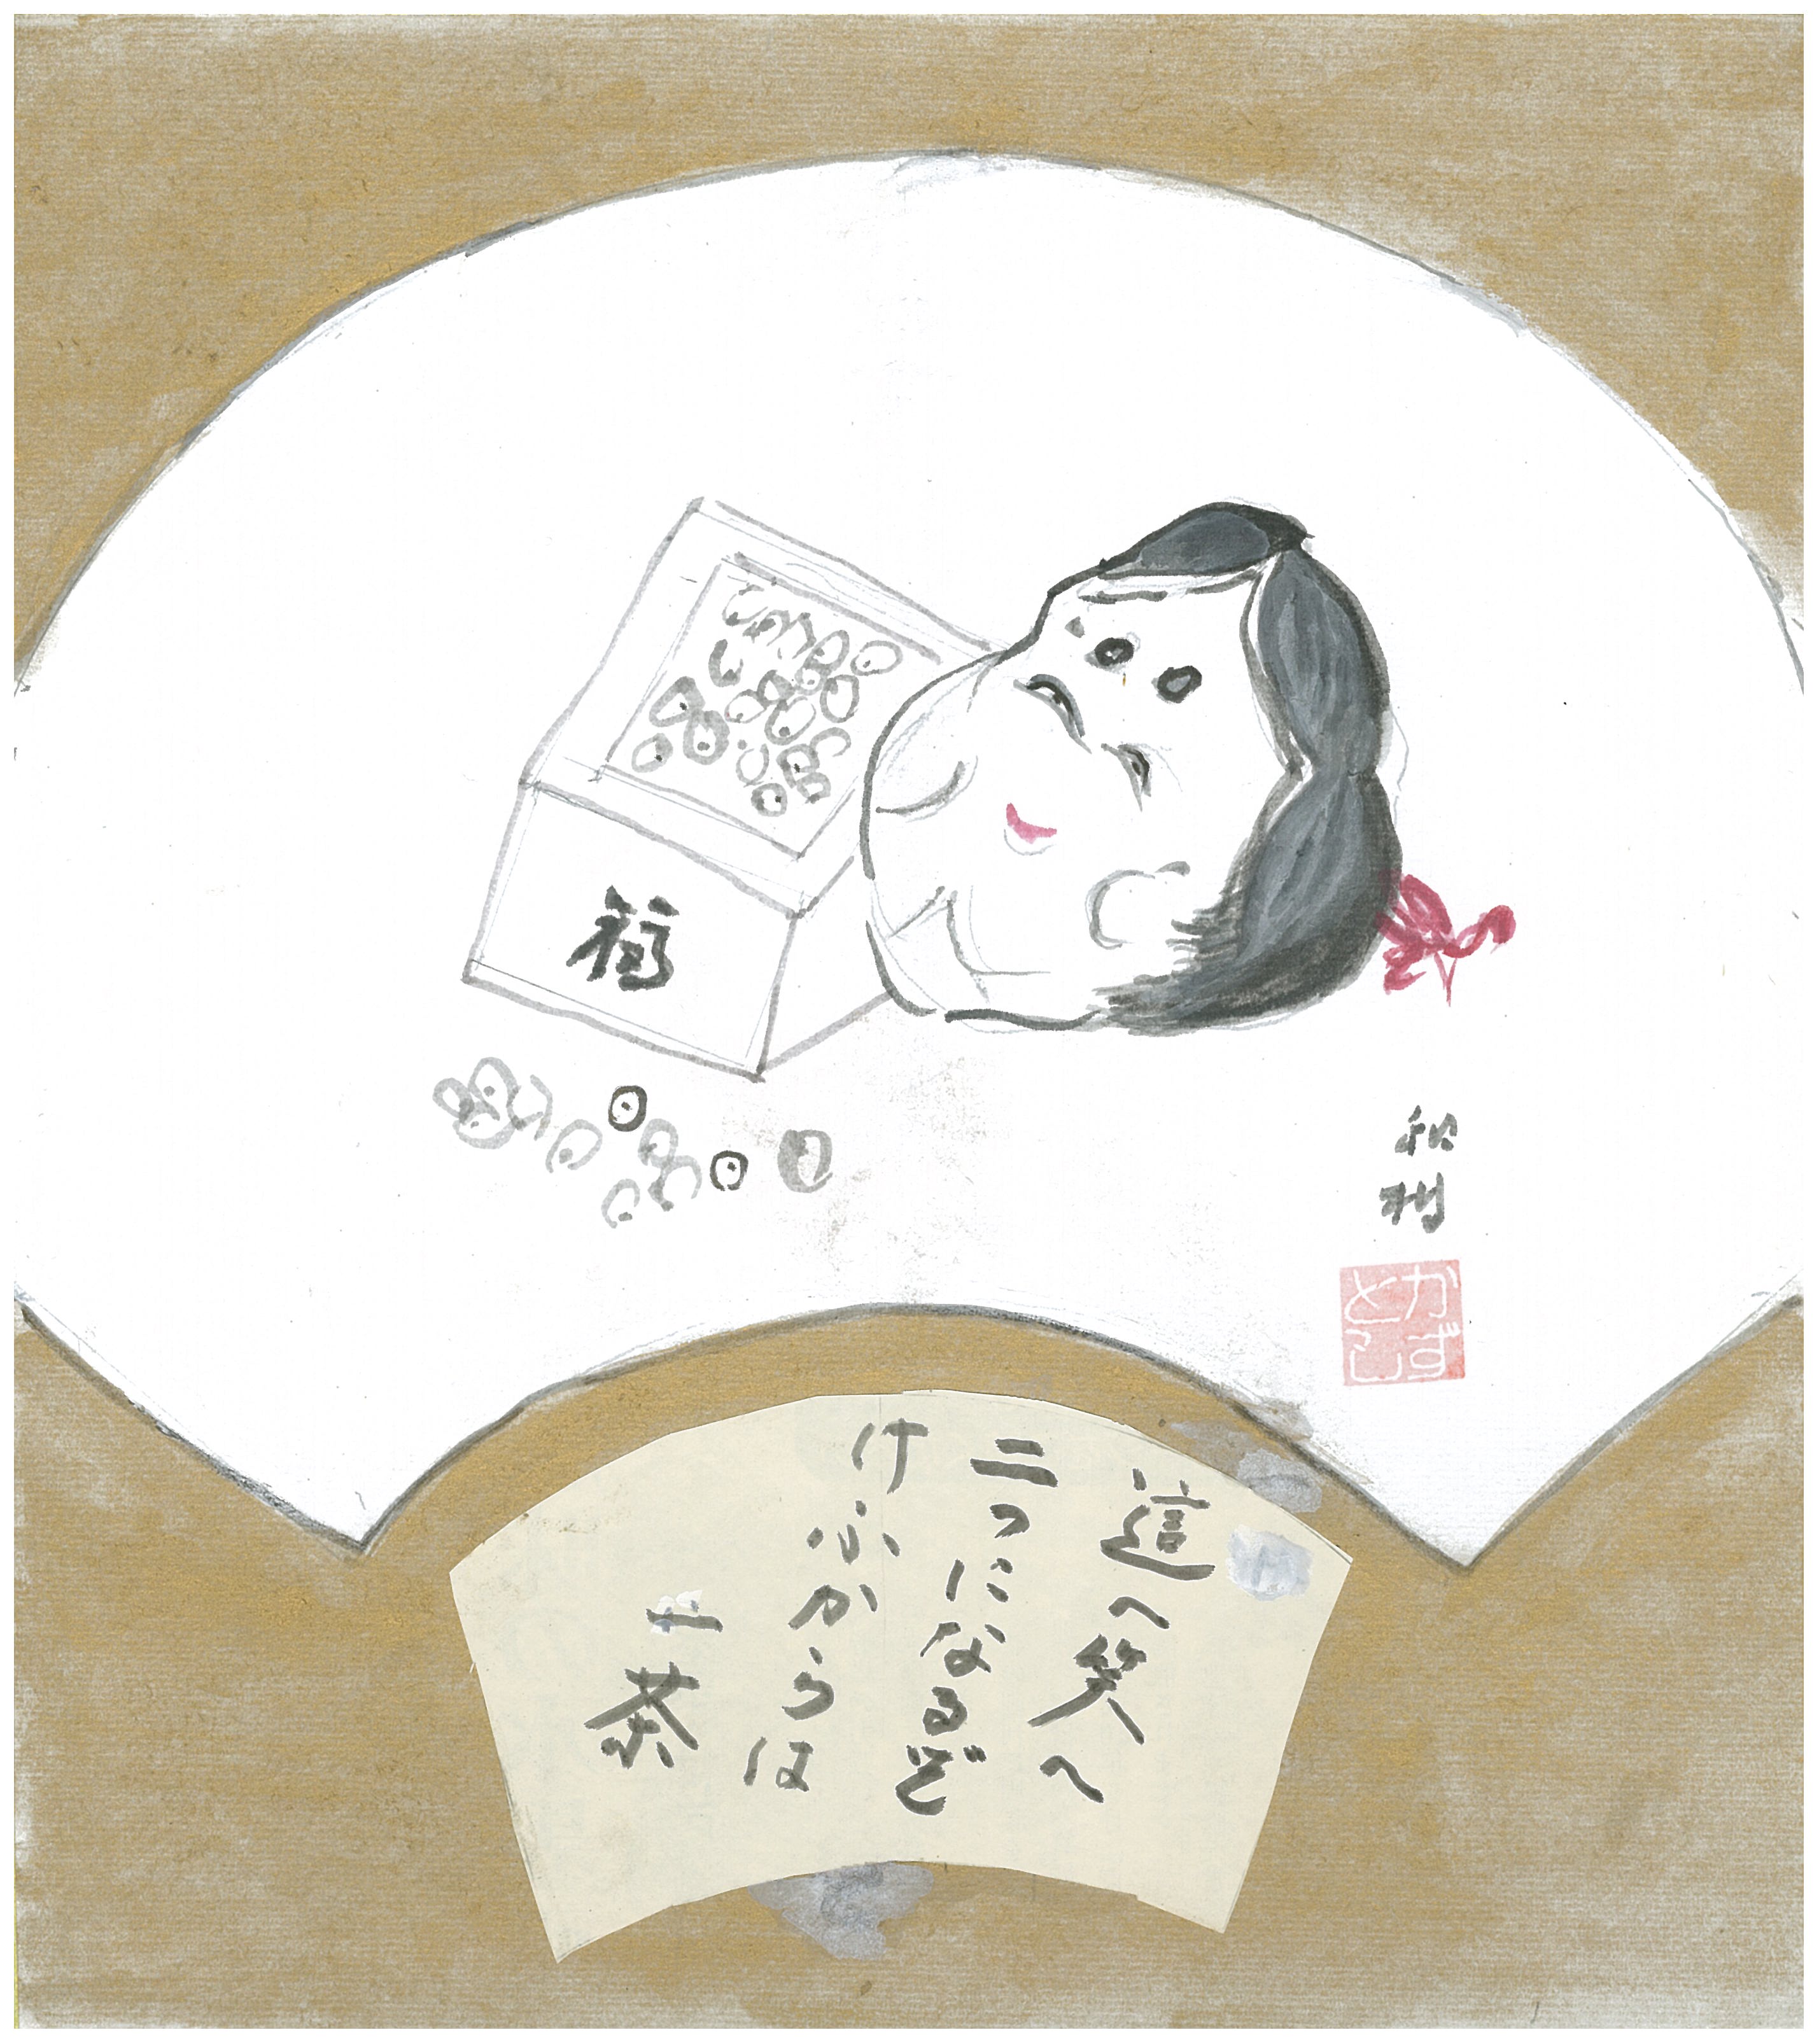 福
和利
かず
とし
這へ笑へ
二つになるぞ
けふからは
一茶